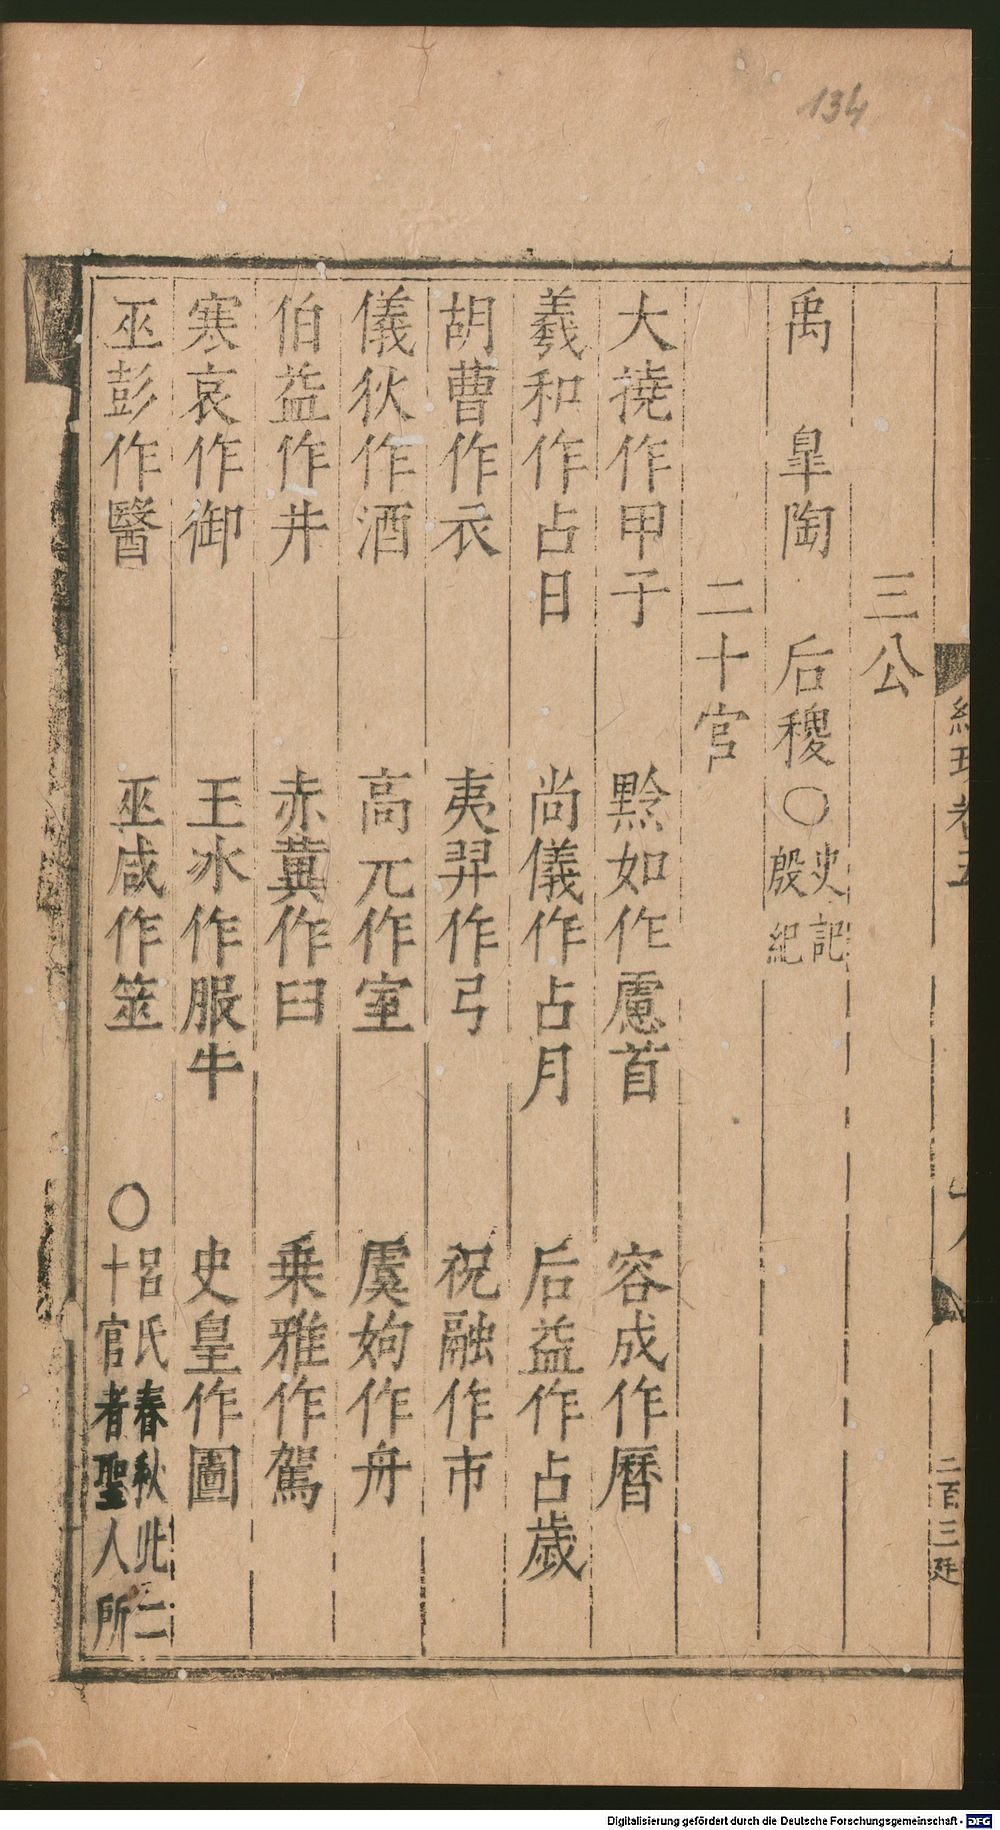 134
三公
禹 臯陶 后稷○史記殷紀
二十官
大撓作甲子 黔如作慮首 容成作曆
羲和作占日 尚儀作占月 后益作占歲
胡曹作衣 夷羿作弓 祝融作市
儀狄作酒 高元作室 虞姁作舟
伯益作井 赤冀作臼 乗雅作駕
寒哀作御 王冰作服牛 史皇作圖
巫彭作醫 巫咸作筮 ○呂氏春秋此二十官者聖人所
二百三
Digitalisierung gefördert durch die Deutsche Forschungsgemeinschaft - DFG